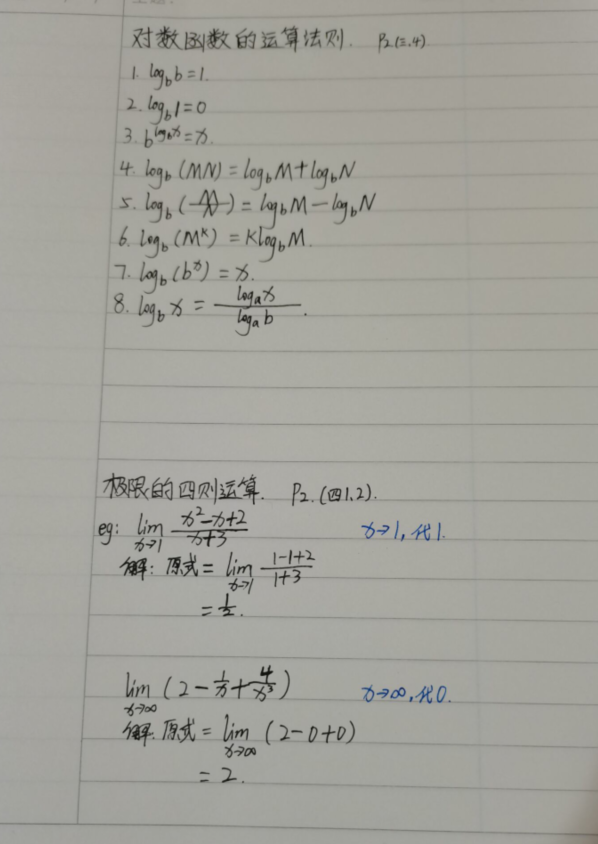 对数函数的运算法则. P₂(三.4)
1. log_b b=1.
2. log_b 1=0
3. b^(log_b x)=x.
4. log_b (MN)=log_b M+log_b N
5. log_b (M/N)=log_b M-log_b N
6. log_b (M^k)=k log_b M.
7. log_b (b^x)=x.
8. log_b x = log_a x / log_a b.
极限的四则运算. P₂.(四1.2).
eg: lim_(x→1) (x²-x+2)/(x+3) x→1, 代1.
解: 原式=lim_(x→1) (1-1+2)/(1+3)
=1/2.
lim_(x→∞) (2-1/x+4/x³) x→∞, 代0.
解. 原式=lim_(x→∞) (2-0+0)
=2.